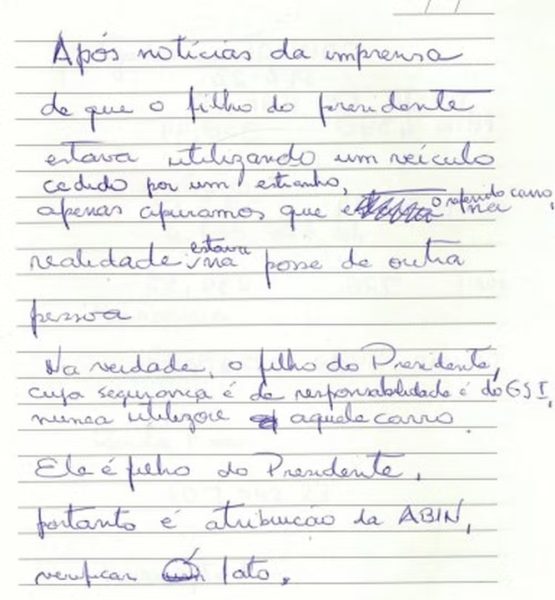 Após notícias da imprensa
de que o filho do presidente
estava utilizando um veículo
cedido por um estranho,
apenas apuramos que o referido carro, na
realidade, estava na posse de outra
pessoa
Na verdade, o filho do Presidente,
cuja segurança é de responsabilidade é do GSI,
nunca utilizou aquele carro.
Ele é filho do Presidente,
portanto é atribuição da ABIN,
verificar fato.